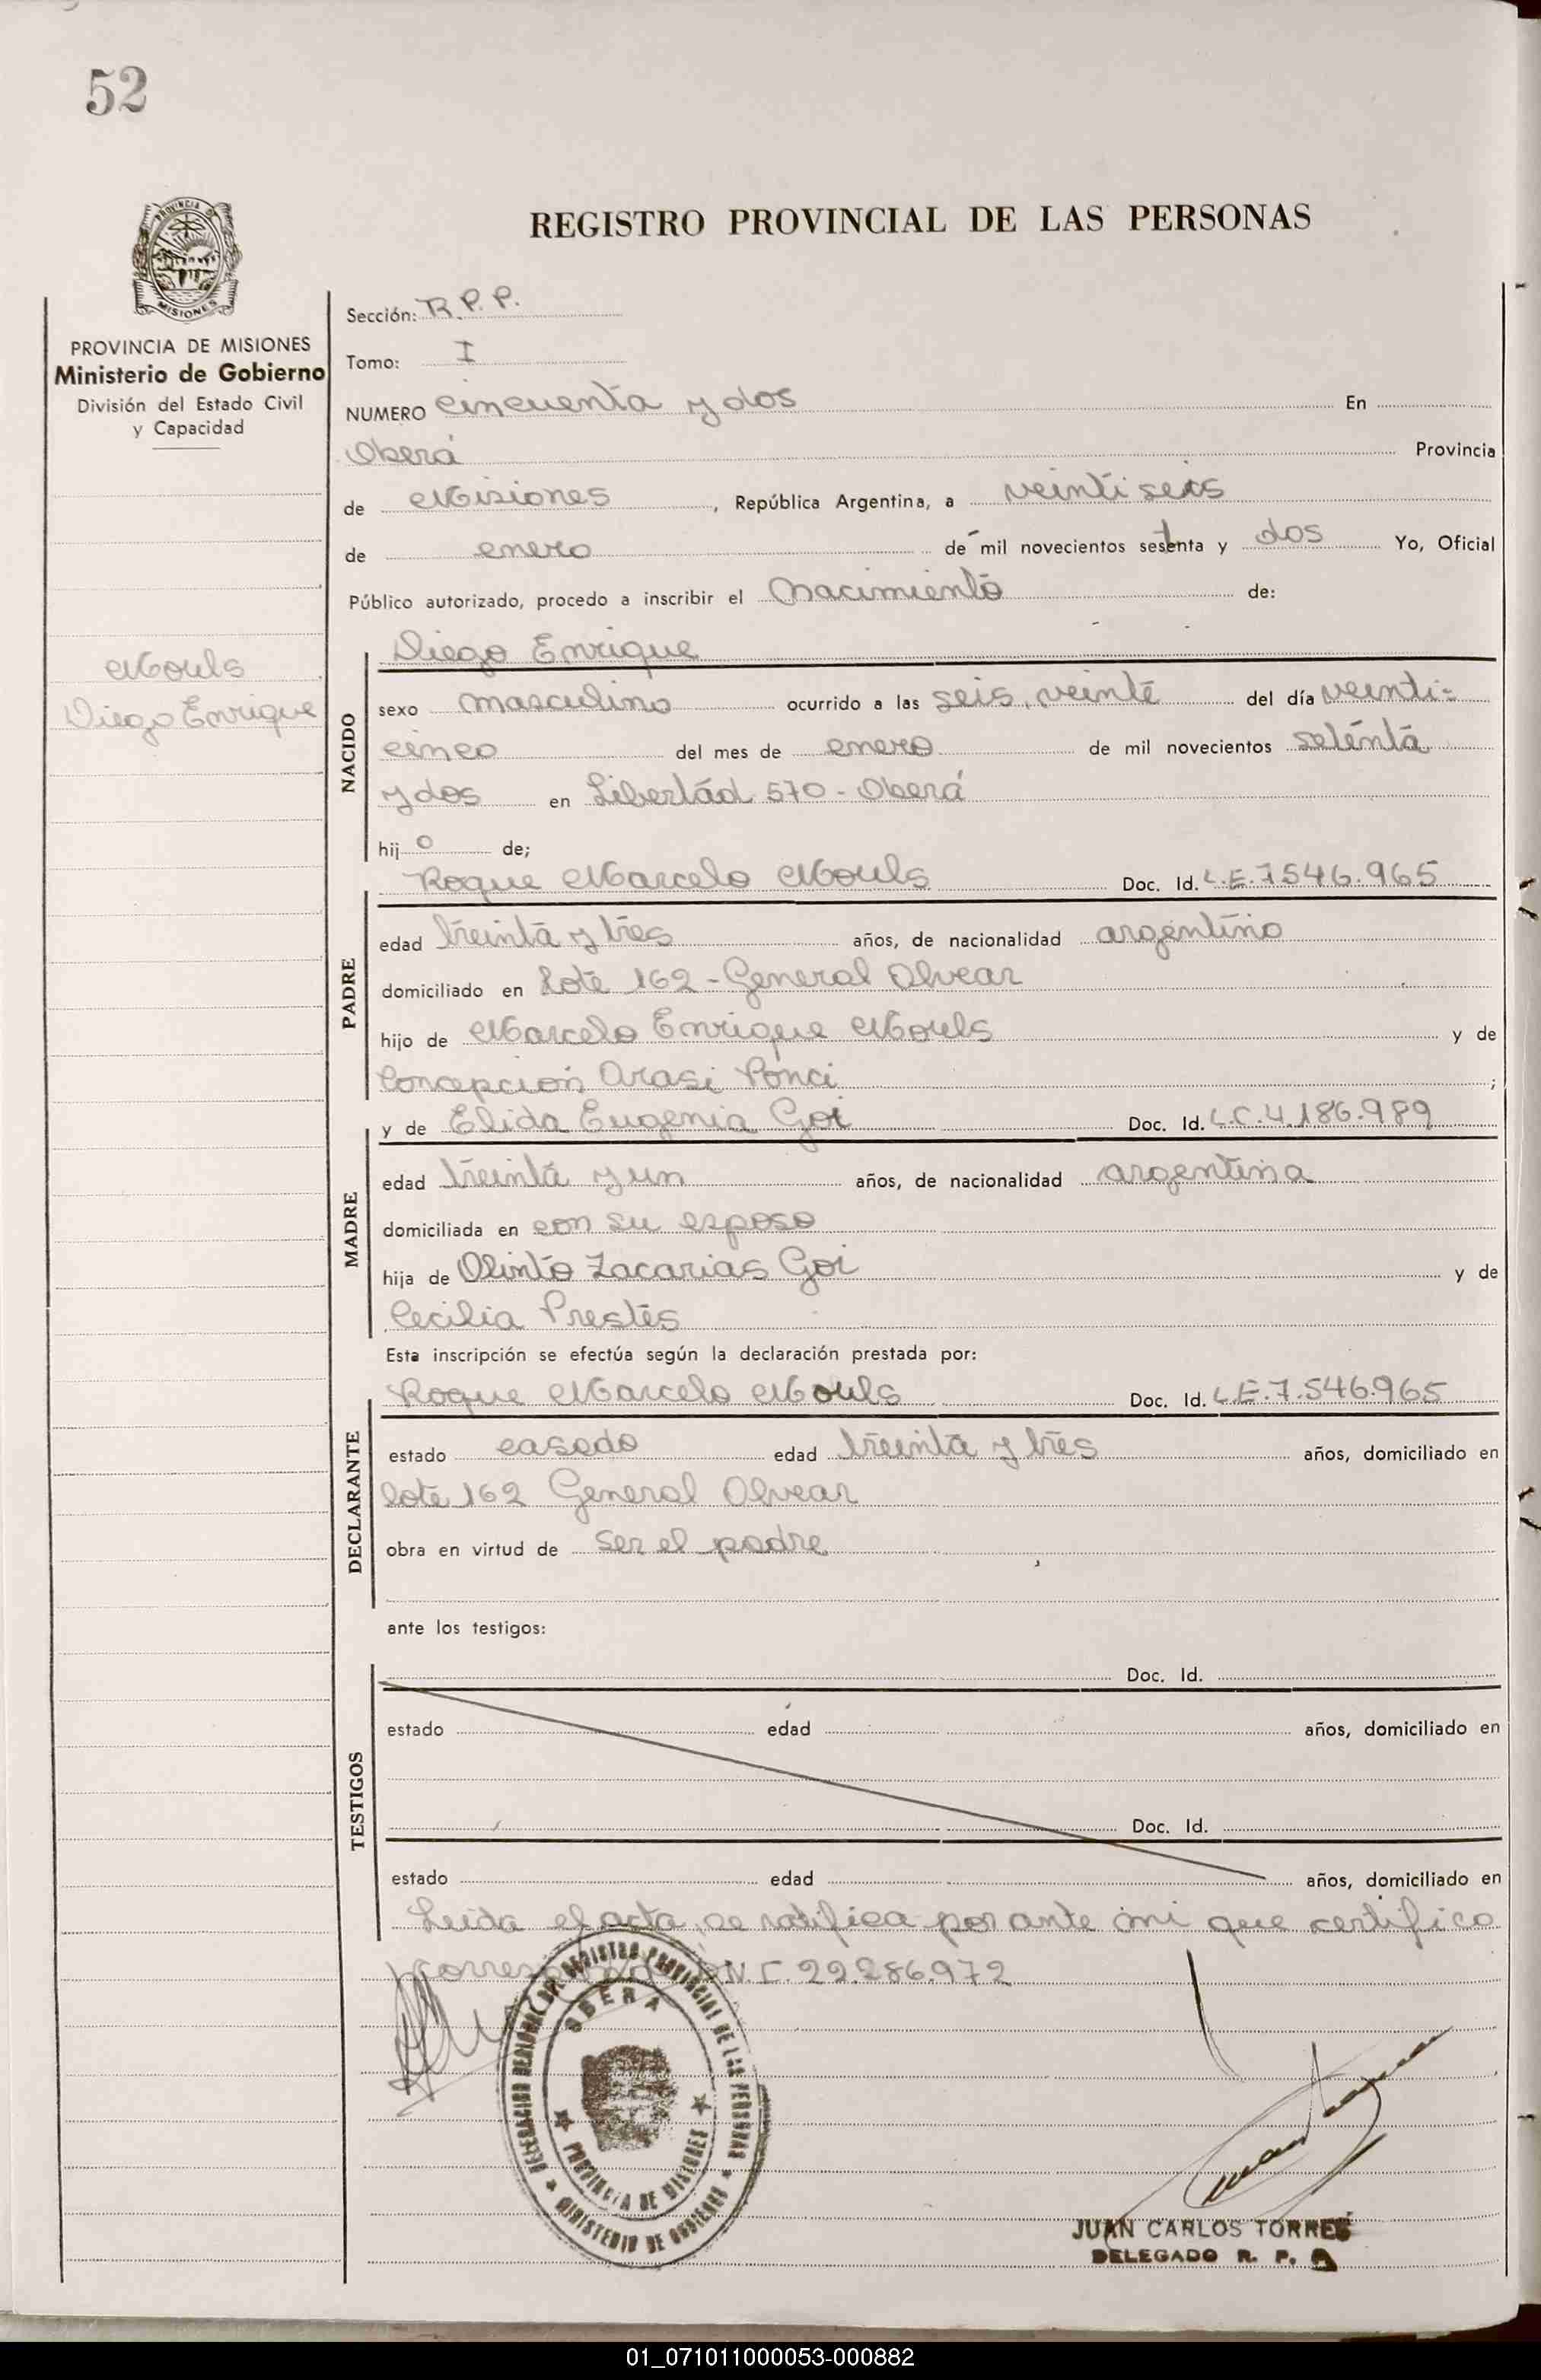 52
REGISTRO PROVINCIAL DE LAS PERSONAS
PROVINCIA DE MISIONES
Ministerio de Gobierno
División del Estado Civil
y Capacidad
Mouls
Diego Enrique
Sección: R.P.P.
Tomo: I
NUMERO cincuenta y dos En
Oberá Provincia
de Misiones, República Argentina, a veintiseis
de enero de mil novecientos setenta y dos Yo, Oficial
Público autorizado, procedo a inscribir el Nacimiento de:
NACIDO
Diego Enrique
sexo masculino ocurrido a las seis, veinte del día veinti-
cinco del mes de enero de mil novecientos setenta
y dos en Libertad 570 - Oberá
hijo de;
PADRE
Roque Marcelo Mouls Doc. Id. L.E. 7546.965
edad treinta y tres años, de nacionalidad argentino
domiciliado en Lote 162 - General Alvear
hijo de Marcelo Enrique Mouls y de
Concepción Arasi Ponci;
MADRE
y de Elida Eugenia Goi Doc. Id. L.C. 4.186.989
edad treinta y un años, de nacionalidad argentina
domiciliada en con su esposo
hija de Olinto Zacarias Goi y de
Cecilia Prestes
Esta inscripción se efectúa según la declaración prestada por:
DECLARANTE
Roque Marcelo Mouls Doc. Id. L.E. 7.546.965
estado casado edad treinta y tres años, domiciliado en
lote 162 General Alvear
obra en virtud de ser el padre
ante los testigos:
TESTIGOS
Doc. Id.
estado edad años, domiciliado en
Doc. Id.
estado edad años, domiciliado en
Leida el acta, se ratifica por ante mi que certifico
D.N.I. 22.286.972
DELEGACION REGISTRO PROVINCIAL DE LAS PERSONAS
OBERA
PROVINCIA DE MISIONES
MINISTERIO DE GOBIERNO
JUAN CARLOS TORRES
DELEGADO R. P. P.
01_071011000053-000882